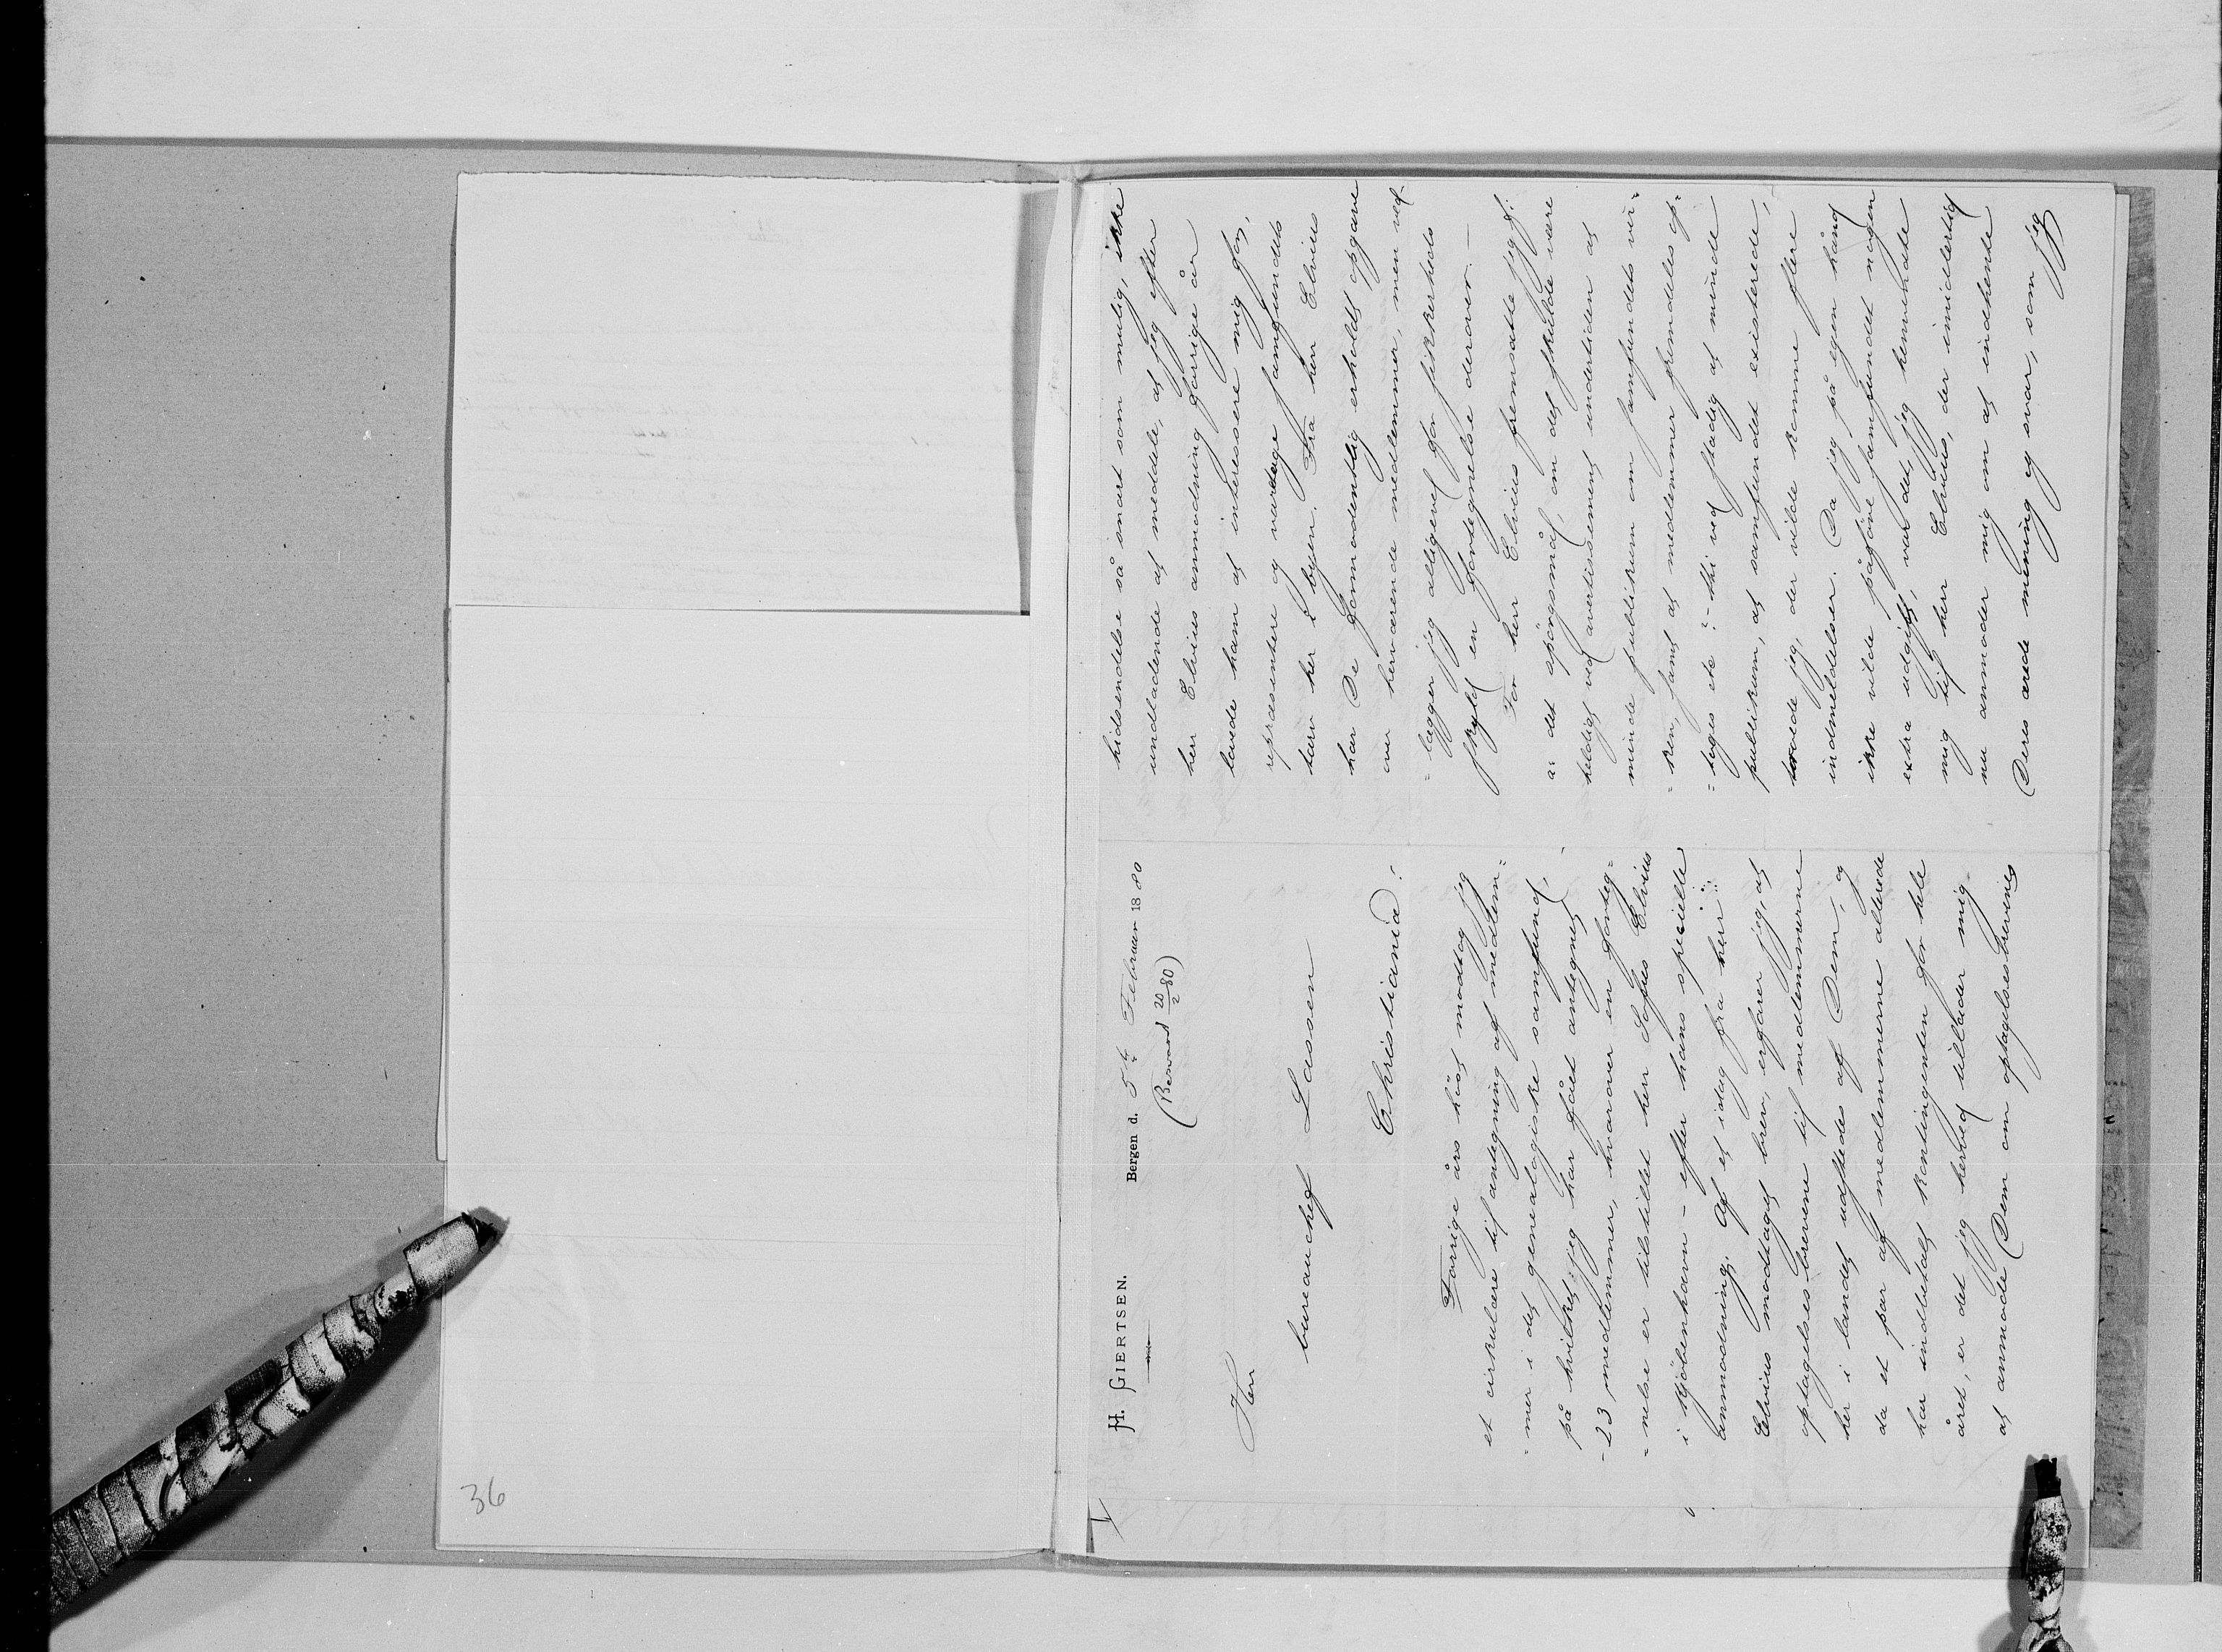 36
H. GIERTSEN.
Bergen d. 5te Februar 1880
(Besvaret 20/2 80)
Herr
bureauchef Lassen
Christiania!
Forrige års høst modtog jeg
et cirkulære til antegning af medlem=
=mer i det genealogiske samfund,
på hvilket jeg har fået antegnet
-23, medlemmer, hvorover en forteg=
=nelse er tilstillet herr Sofus Elvius
i Kjöbenhavn - efter hans specielle
anmodning. Af et idag fra herr
Elvius modtaget brev, erfarer jeg, at
optagelsesbrevene til medlemmerne
her i landet udstedes af Dem, og
da et par af medlemmerne allerede
har indbetalt kontingenten for hele
året, er det jeg herved tillader mig
at anmode Dem om optagelsesbrevenes
hidsendelse så snart som mulig, ikke
undladende at meddele, at jeg efter
herr Elvius anmodning forrige år
lovede ham at interessere mig for,
repræsentere og varetage samfundets
tarv her i byen. Fra herr Elvius
har De formodentlig erholdt opgave
over herværende medlemmer, men ved-
=lægger jeg alligevel for sikkerheds
skyld en fortegnelse derover. —
For herr Elvius fremsatte jeg f:
a: det spörgsmål, om det skulde være
heldigt ved avertissement undertiden at
minde publikum om samfundets vir=
=ken, samt at medlemmer fremdeles op=
=toges etc: - thi ved stadig at minde
publikum, at samfundet existerede,
troede jeg, der vilde komme flere
indmeldelser. Da jeg på egen hånd
ikke vilde påføre samfundet nogen
extra udgift, var det, jeg henvendte
mig til herr Elvius, der imidlertid
nu anmoder mig om at indhente
Deres ærede mening og svar, som jeg